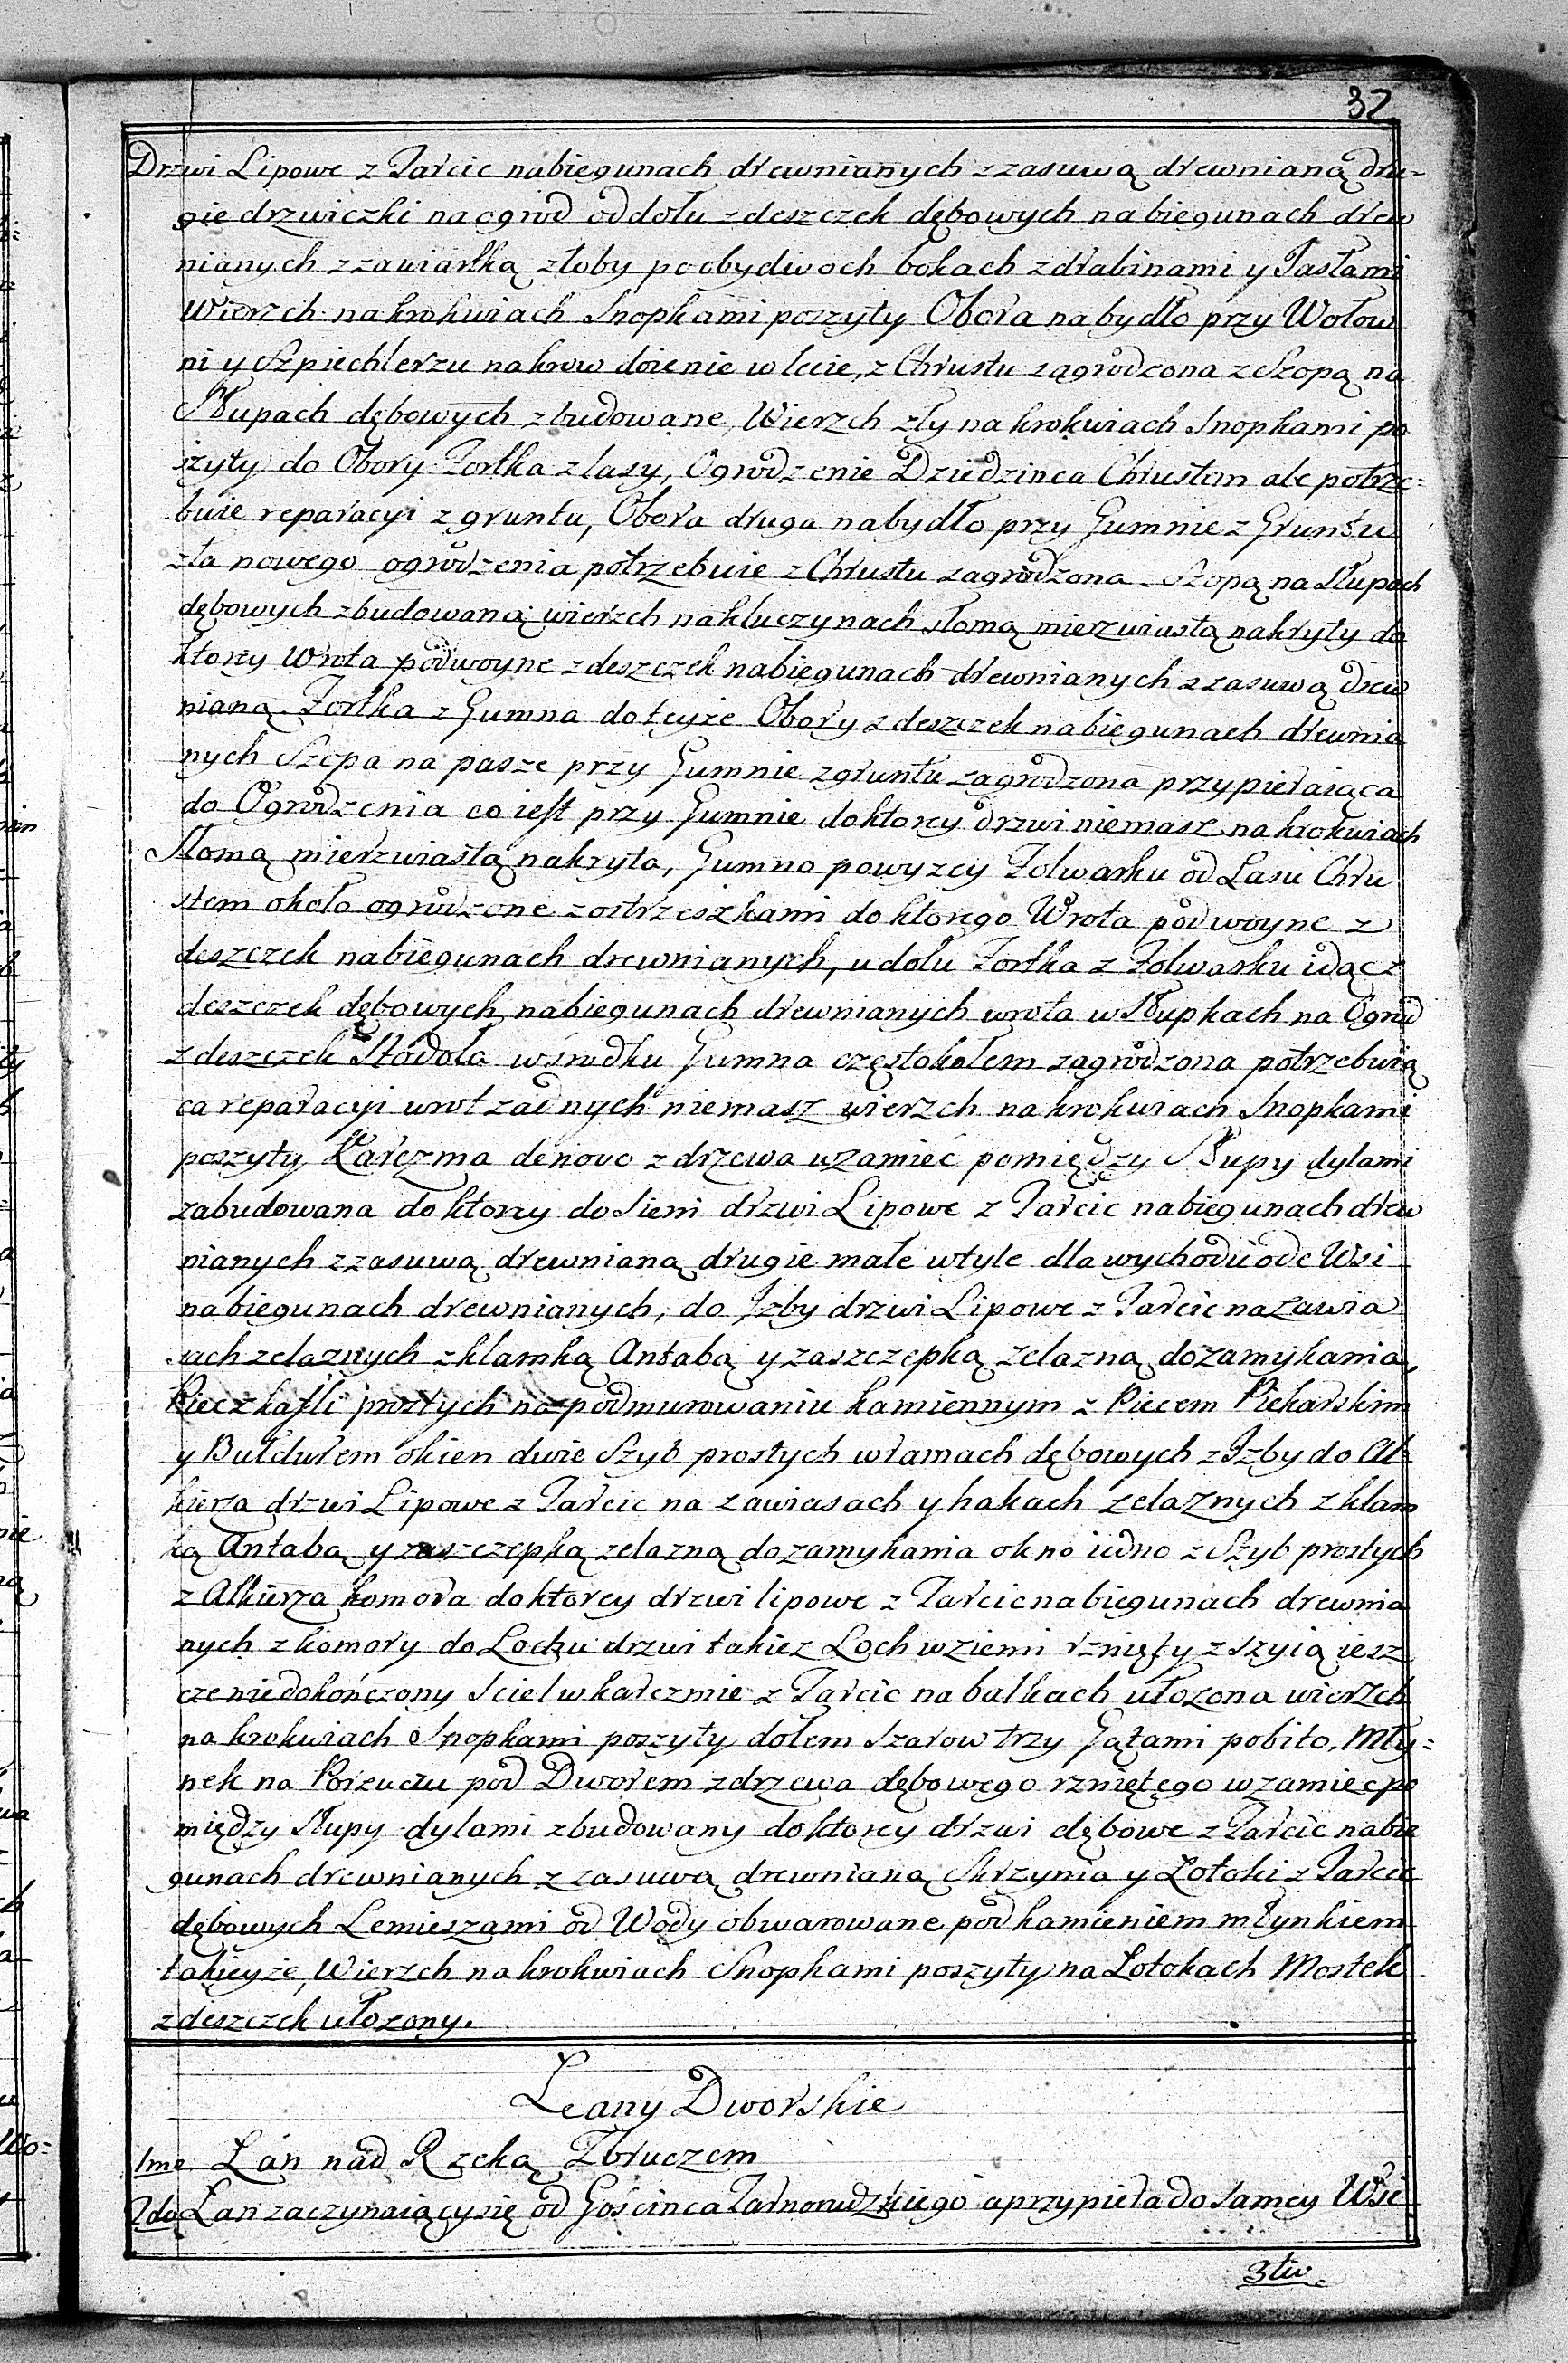 32
Drzwi Lipowe z Tarcic na biegunach drewnianych z zasuwą drewnianą dru-
gie drzwiczki na ogrod od dołu z deszczek dębowych na biegunach drew
nianych z zawiarką złoby po obydwoch bokach z drabinami y Jasłami
Wierzch na krokwiach Snopkami poszyty Obora na bydło przy Wołow
ni y Szpiechlerzu na krow doienie w lecie, z Chrustu zagrodzona z Szopą na
Słupach dębowych zbudowane, Wierzch zły na krokwiach Snopkami po
szyty do Obory Fortka z lasy, Ogrodzenie Dziedzinca Chrustem ale potrze-
buie reparacyi z gruntu, Obora druga na bydło przy Gumnie z Gruntu
zła nowego ogrodzenia potrzebuie z Chrustu zagrodzona z Szopą na Słupach
dębowych zbudowaną wierzch na kluczynach słomą mierzwiastą nakryty do
ktorey Wrota podwoyne z deszczek na biegunach drewnianych z zasuwą drew
nianą Fortka z Gumna do teyże Obory z deszczek na biegunach drewnia
nych Szopa na pasze przy Gumnie z gruntu zagrodzona przypieraiąca
do Ogrodzenia co iest przy Gumnie do ktorey drzwi niemasz na krokwiach
Słomą mierzwiastą nakryta, Gumno powyzey Folwarku od Lasu Chru
stem około ogrodzone z ostrzeszkami do ktorego Wrota podwoyne z
deszczek na biegunach drewnianych, u dołu Fortka z Folwarku idąc z
deszczek dębowych na biegunach drewnianych wrota w Słupkach na Ogrod
z deszczek Stodoła w srodku Gumna częstokołem zagrodzona potrzebuią
ca reparacyi wrot zadnych niemasz wierzch na krokwiach Snopkami
poszyty, Karczma denovo z drzewa w zamieć pomiędzy Słupy dylami
zabudowana do ktorey do sieni drzwi Lipowe z Tarcic na biegunach drew
nianych z zasuwą drewnianą drugie małe w tyle dla wychodu ode Wsi
na biegunach drewnianych, do Izby drzwi Lipowe z Tarcic na zawia
sach zelaznych z klamką Antabą y zaszczepką zelazną do zamykania,
Piec z kafli prostych na podmurowaniu kamiennym z Piecem Piekarskim
y Bułdurem okien dwie Szyb prostych w ramach dębowych z Izby do Al-
kierza drzwi Lipowe z Tarcic na zawiasach y hakach zelaznych z klam
ką Antabą y zaszczepką zelazną do zamykania okno iedno z Szyb prostych
z Alkierza komora do ktorey drzwi lipowe z Tarcic na biegunach drewnia
nych z komory do Lochu drzwi takiez Loch w ziemi rznięty z szyią iesz
cze niedokończony Sciel w karczmie z Tarcic na balkach ułozona wierzch
na krokwiach Snopkami poszyty dołem Szarow trzy Gątami pobito. Mły-
nek na Porzuczu pod Dworem z drzewa dębowego rzniętego w zamiec po
między Słupy dylami zbudowany do ktorey drzwi dębowe z Tarcic na bie
gunach drewnianych z zasuwą drewnianą Skrzynia y Łotoki z Tarcic
dębowych Lemieszami od Wody obwarowane pod kamieniem młynkiem
takieyże, Wierzch na krokwiach Snopkami poszyty na Łotokach Mostek
z deszczek ułozony.
Łany Dworskie
1mo Łan nad Rzeką Zbruczem
2do Łan zaczynaiący się od Gościnca Tarnorudzkiego a przypiera do samey Wsi
3tio